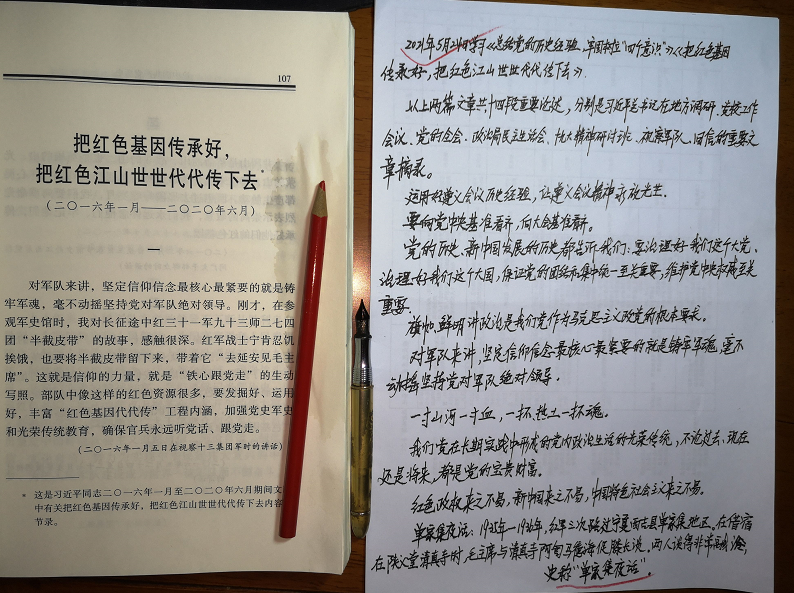 107
把红色基因传承好，
把红色江山世世代代传下去*
（二〇一六年一月——二〇二〇年六月）
一
对军队来讲，坚定信仰信念最核心最紧要的就是铸
牢军魂，毫不动摇坚持党对军队绝对领导。刚才，在参
观军史馆时，我对长征途中红三十一军九十三师二七四
团“半截皮带”的故事，感触很深。红军战士宁肯忍饥
挨饿，也要将半截皮带留下来，带着它“去延安见毛主
席”。这就是信仰的力量，就是“铁心跟党走”的生动
写照。部队中像这样的红色资源很多，要发掘好、运用
好，丰富“红色基因代代传”工程内涵，加强党史军史
和光荣传统教育，确保官兵永远听党话、跟党走。
（二〇一六年一月五日在视察十三集团军时的讲话）
* 这是习近平同志二〇一六年一月至二〇二〇年六月期间文
中有关把红色基因传承好，把红色江山世世代代传下去内容
节录。
2021年5月24日学习《总结党的历史经验、牢固树立“四个意识”》《把红色基因
传承好，把红色江山世世代代传下去》
以上两篇文章共十四段重要论述，分别是习近平总书记在地方调研、党校工作
会议、党的全会、政治局民主生活会、十九大精神研讨班、视察军队、回信的重要文
章摘录。
运用好遵义会议历史经验，让遵义会议精神永放光芒。
要向党中央基准看齐，向大会基准看齐。
党的历史、新中国发展的历史都告诉我们：要治理好我们这个大党、
治理好我们这个大国，保证党的团结和集中统一至关重要，维护党中央权威至关
重要。
旗帜鲜明讲政治是我们党作为马克思主义政党的根本要求。
对军队来讲，坚定信仰信念最核心最紧要的就是铸牢军魂，毫不
动摇坚持党对军队绝对领导。
一寸山河一寸血，一抔热土一抔魂。
我们党在长期实践中形成的党内政治生活的光荣传统，不论过去、现在
还是将来，都是党的宝贵财富。
红色政权来之不易，新中国来之不易，中国特色社会主义来之不易。
单家集夜话：1935年—1936年，红军三次路过宁夏西吉县单家集地区。在借宿
在陕义堂清真寺时，毛主席与清真寺阿訇马德海促膝长谈，两人谈得非常融洽，
史称“单家集夜话”。